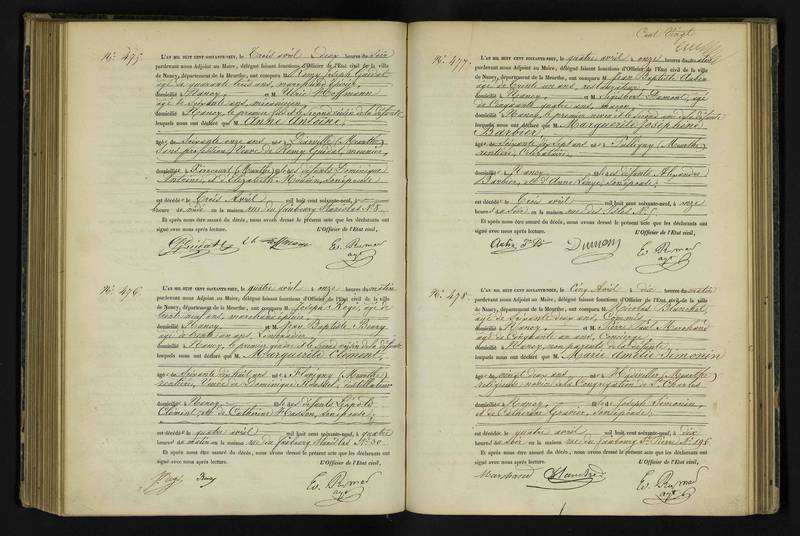 Cent Vingt
No. 475.
L'AN MIL HUIT CENT SOIXANTE-NEUF, le Trois avril à Deux heures du Soir
pardevant nous Adjoint au Maire, délégué faisant fonctions d'Officier de l'Etat civil de la ville
de Nancy, département de la Meurthe, ont comparu M. Remy Joseph Guidat
âgé de quarante trois ans, marchand épicier,
domicilié à Nancy, et M. Hoffmann
âgé de Soixante ans,
domicilié à Nancy, le premier fils et le second voisin de la défunte
lesquels nous ont déclaré que M. Anne Antoine,
âgée de Soixante onze ans née à Diarville (Meurthe)
sans profession, Veuve de Remy Guidat, meunier,
domiciliée à (Meurthe) fille des défunts Dominique
Antoine, et Elizabeth son épouse
est décédée le Trois Avril mil huit cent soixante-neuf, à
heure de midi en la maison rue du faubourg Stanislas No. 8.
Et après nous être assuré du décès, nous avons dressé le présent acte que les déclarants ont
signé avec nous après lecture. L'Officier de l'Etat civil,
No. 476.
L'AN MIL HUIT CENT SOIXANTE-NEUF, le quatre avril à onze heures du matin
pardevant nous Adjoint au Maire, délégué faisant fonctions d'Officier de l'Etat civil de la ville
de Nancy, département de la Meurthe, ont comparu M. Joseph âgé de
trente neuf ans,
domicilié à Nancy, et M. Jean Baptiste
âgé de trente ans, Limonadier
domicilié à Nancy, le premier gendre et le second voisin de la défunte
lesquels nous ont déclaré que M. Marguerite Clément,
âgée de Soixante dix huit ans née à Flavigny (Meurthe)
rentière, Veuve de Dominique
domiciliée à Nancy, fille des défunts Léopold
Clément, et de Catherine Husson, son épouse,
est décédée le quatre avril mil huit cent soixante-neuf, à quatre
heures du matin en la maison rue du faubourg Stanislas No. 30.
Et après nous être assuré du décès, nous avons dressé le présent acte que les déclarants ont
signé avec nous après lecture. L'Officier de l'Etat civil,
No. 477.
L'AN MIL HUIT CENT SOIXANTE-NEUF, le quatre avril à onze heures du matin
pardevant nous Adjoint au Maire, délégué faisant fonctions d'Officier de l'Etat civil de la ville
de Nancy, département de la Meurthe, ont comparu M. Jean Baptiste
âgé de Trente six ans,
domicilié à Nancy, et M. Dumont, âgé
de Cinquante quatre ans, maçon,
domicilié à Nancy, le premier neveu et le second ami de la défunte
lesquels nous ont déclaré que M. Marguerite Joséphine
Barbier,
âgée de Soixante dix sept ans née à Pulligny (Meurthe)
rentière, Célibataire,
domiciliée à Nancy fille des défunts Alexandre
Barbier, et d'Anne son épouse,
est décédée le Trois avril mil huit cent soixante-neuf, à onze
heures du Soir en la maison rue des No. 5.
Et après nous être assuré du décès, nous avons dressé le présent acte que les déclarants ont
signé avec nous après lecture. L'Officier de l'Etat civil,
Dumont
No. 478.
L'AN MIL HUIT CENT SOIXANTE-NEUF, le Cinq Avril à dix heures du matin
pardevant nous Adjoint au Maire, délégué faisant fonctions d'Officier de l'Etat civil de la ville
de Nancy, département de la Meurthe, ont comparu M. Nicolas Blanchet
âgé de Soixante deux ans, Commis,
domicilié à Nancy, et M. Pierre Paul Marchand
âgé de Cinquante six ans, Concierge,
domicilié à Nancy, non parents de la défunte
lesquels nous ont déclaré que M. Marie Amélie Simonin
âgée de vingt deux ans née à (Meurthe)
religieuse novice de la Congrégation de St Charles
domiciliée à Nancy, fille de Joseph Simonin,
et de Catherine son épouse,
est décédée le quatre avril mil huit cent soixante-neuf, à dix
heures du Soir en la maison rue du faubourg St Pierre No. 196.
Et après nous être assuré du décès, nous avons dressé le présent acte que les déclarants ont
signé avec nous après lecture. L'Officier de l'Etat civil,
Marchand